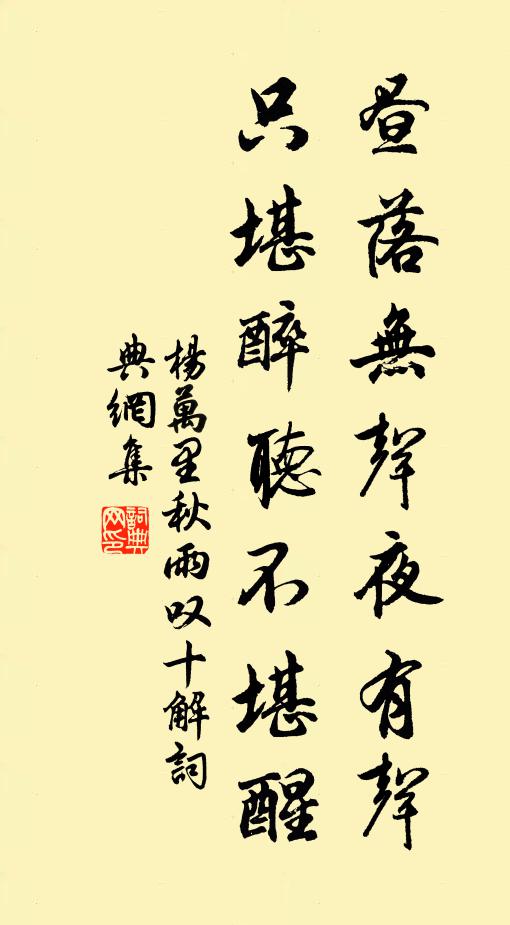 昼落無聲夜有聲
只堪醉聽不堪醒
楊萬里秋雨叹十解詞
典網集
詞典网印